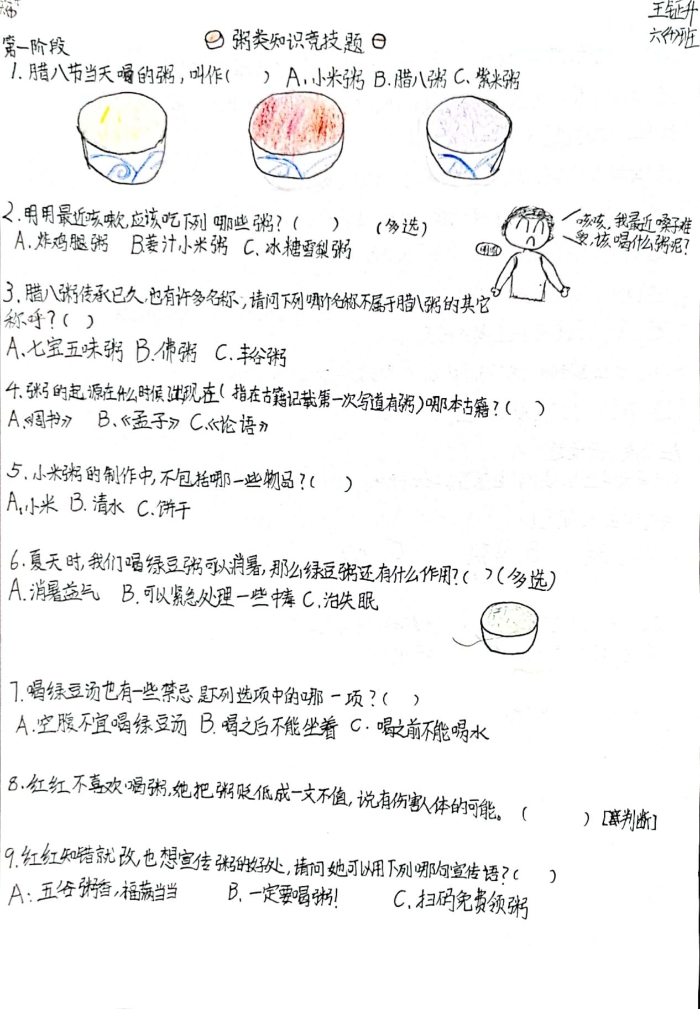 王钲升
六(4)班
粥类知识竞技题
第一阶段
1.腊八节当天喝的粥,叫作( ) A.小米粥 B.腊八粥 C.紫米粥
2.明明最近咳嗽,应该吃下列哪些粥?( ) (多选)
A.炸鸡腿粥 B.姜汁小米粥 C.冰糖雪梨粥
咳咳,我最近嗓子难
受,该喝什么粥呢?
明明
3.腊八粥传承已久,也有许多名称,请问下列哪个名称不属于腊八粥的其它
称呼?( )
A.七宝五味粥 B.佛粥 C.丰谷粥
4.粥的起源在什么时候出现在(指在古籍记载第一次写道有粥)哪本古籍?( )
A.《周书》 B.《孟子》 C.《论语》
5.小米粥的制作中,不包括哪一些物品?( )
A.小米 B.清水 C.饼干
6.夏天时,我们喝绿豆粥可以消暑,那么绿豆粥还有什么作用?( )(多选)
A.消暑益气 B.可以紧急处理一些中毒 C.治失眠
7.喝绿豆汤也有一些禁忌 是下列选项中的哪一项?( )
A.空腹不宜喝绿豆汤 B.喝之后不能坐着 C.喝之前不能喝水
8.红红不喜欢喝粥,她把粥贬低成一文不值,说有伤害人体的可能。( ) [判断]
9.红红知错就改,也想宣传粥的好处,请问她可以用下列哪句宣传语?( )
A:五谷粥香,福满当当 B.一定要喝粥! C.扫码免费领粥